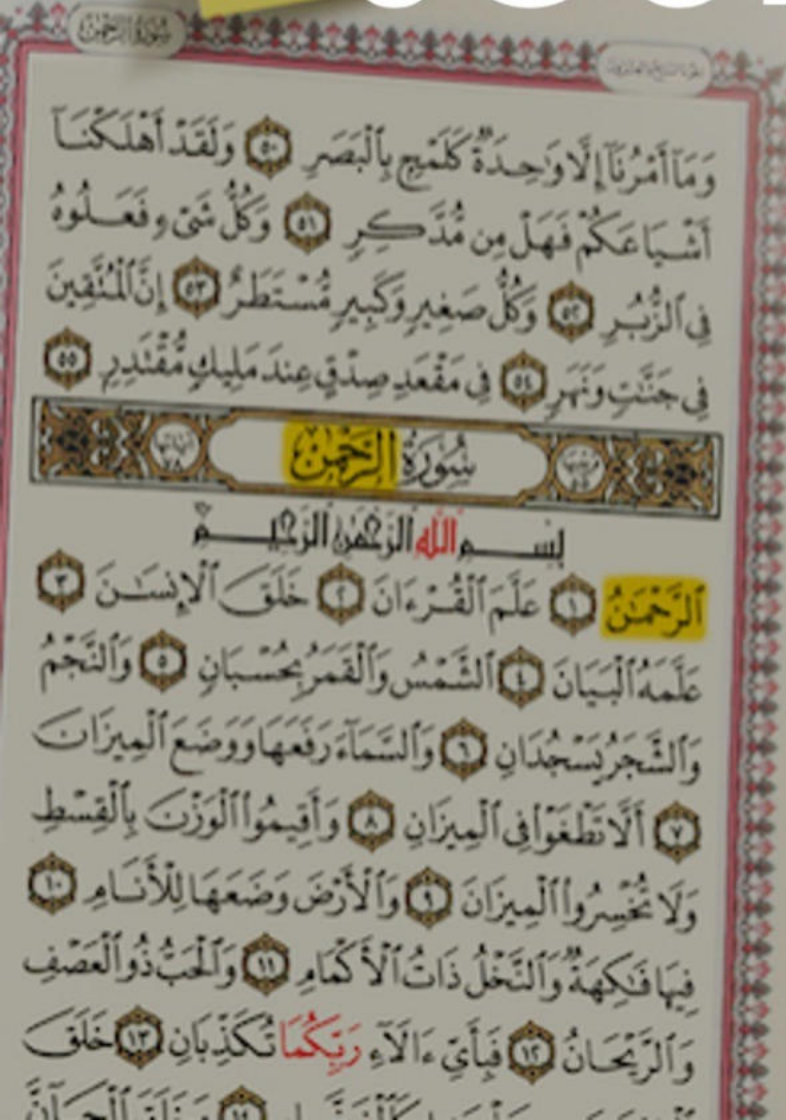 سُورَةُ الرَّحْمٰن
وَمَآ أَمْرُنَآ إِلَّا وَٰحِدَةٌ كَلَمْحٍۭ بِٱلْبَصَرِ ٥٠ وَلَقَدْ أَهْلَكْنَآ
أَشْيَاعَكُمْ فَهَلْ مِن مُّدَّكِرٍ ٥١ وَكُلُّ شَىْءٍ فَعَلُوهُ
فِى ٱلزُّبُرِ ٥٢ وَكُلُّ صَغِيرٍ وَكَبِيرٍ مُّسْتَطَرٌ ٥٣ إِنَّ ٱلْمُتَّقِينَ
فِى جَنَّٰتٍ وَنَهَرٍ ٥٤ فِى مَقْعَدِ صِدْقٍ عِندَ مَلِيكٍ مُّقْتَدِرٍۭ ٥٥
سُورَةُ الرَّحْمٰن آياتها ٧٨
بِسْمِ ٱللَّهِ ٱلرَّحْمَٰنِ ٱلرَّحِيمِ
ٱلرَّحْمَٰنُ ١ عَلَّمَ ٱلْقُرْءَانَ ٢ خَلَقَ ٱلْإِنسَٰنَ ٣
عَلَّمَهُ ٱلْبَيَانَ ٤ ٱلشَّمْسُ وَٱلْقَمَرُ بِحُسْبَانٍ ٥ وَٱلنَّجْمُ
وَٱلشَّجَرُ يَسْجُدَانِ ٦ وَٱلسَّمَآءَ رَفَعَهَا وَوَضَعَ ٱلْمِيزَانَ
٧ أَلَّا تَطْغَوْا۟ فِى ٱلْمِيزَانِ ٨ وَأَقِيمُوا۟ ٱلْوَزْنَ بِٱلْقِسْطِ
وَلَا تُخْسِرُوا۟ ٱلْمِيزَانَ ٩ وَٱلْأَرْضَ وَضَعَهَا لِلْأَنَامِ ١٠
فِيهَا فَٰكِهَةٌ وَٱلنَّخْلُ ذَاتُ ٱلْأَكْمَامِ ١١ وَٱلْحَبُّ ذُو ٱلْعَصْفِ
وَٱلرَّيْحَانُ ١٢ فَبِأَىِّ ءَالَآءِ رَبِّكُمَا تُكَذِّبَانِ ١٣ خَلَقَ